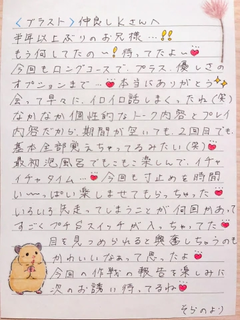 〈ブラスト〉仲良しKさんへ
半年以上ぶりのお兄様…!!
もう何してたの〜!待ってたよ〜
今回もロングコースで、プラス、優しさの
オプションまで…本当にありがとう
会って早々に、イロイロ話しまくったね(笑)
なかなか個性的なトーク内容とプレイ
内容だから、期間が空いても、2回目でも、
基本全部覚えちゃってるみたい(笑)
最初泡風呂でもこもこ楽しんで、イチャ
イチャタイム…今回も寸止めを時間
い〜っぱい楽しませてもらっちゃった
いろいろ
すごくプチSスイッチが入っちゃってた
目を見つめられると興奮しちゃうのも
かわいいなぁって思ったよ
今回の作戦の報告を楽しみに
次のお誘い待ってるね
そらのより